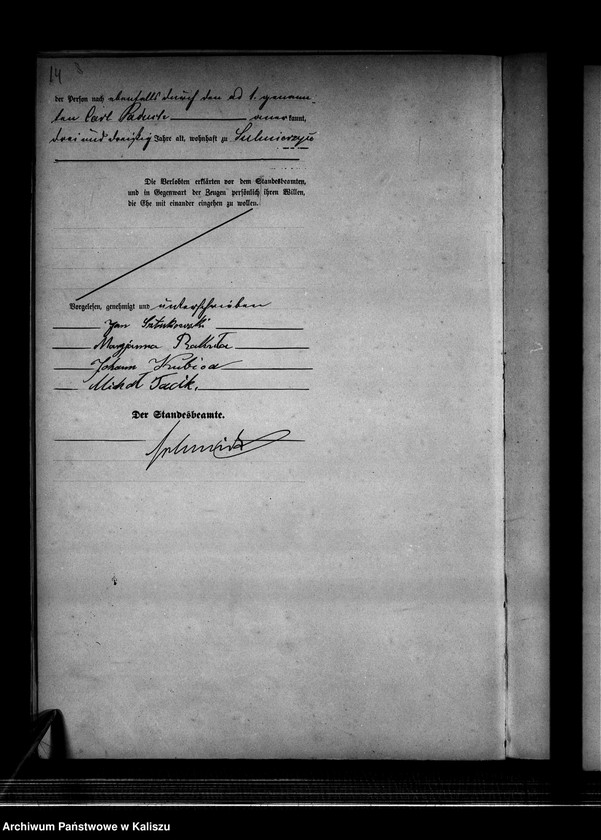 14
der Person nach ebenfalls durch den ad 1. genann-
ten Carl anerkannt,
drei und dreißig Jahre alt, wohnhaft zu Sulmierzyce
Die Verlobten erklärten vor dem Standesbeamten,
und in Gegenwart der Zeugen persönlich ihren Willen,
die Ehe mit einander eingehen zu wollen.
Vorgelesen, genehmigt und unterschrieben
Jan
Maryanna
Johann Kubiod
Michał Tacik.
Der Standesbeamte.
Archiwum Państwowe w Kaliszu